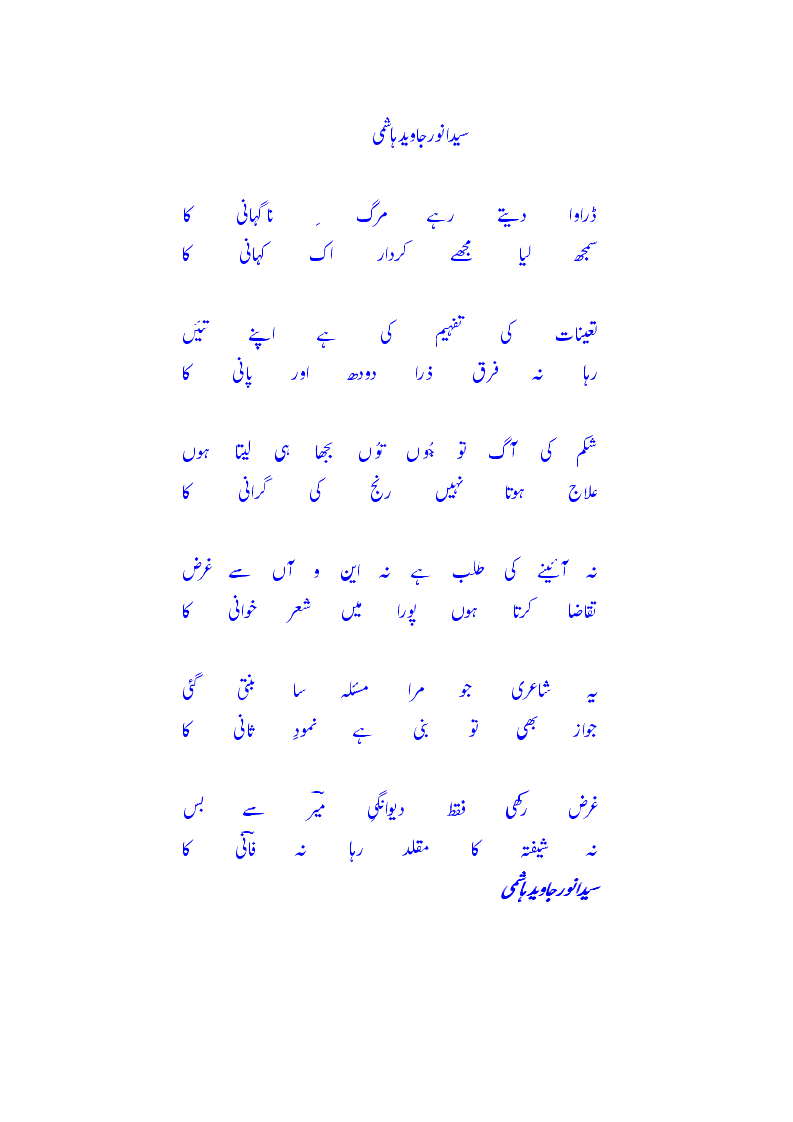 سیدانورجاویدہاشمی
ڈراوا دیتے رہے مرگ ِ ناگہانی کا
سمجھ لیا مجھے کردار اک کہانی کا
تعینات کی تفہیم کی ہے اپنے تئیں
رہا نہ فرق ذرا دودھ اور پانی کا
شکم کی آگ تو جُوں تُوں بجھا ہی لیتا ہوں
علاج ہوتا نہیں رنج کی گرانی کا
نہ آئینے کی طلب ہے نہ این و آں سے غرض
تقاضا کرتا ہوں پورا میں شعر خوانی کا
یہ شاعری جو مرا مسئلہ سا بنتی گئی
جواز بھی تو بنی ہے نمودِ ثانی کا
غرض رکھی فقط دیوانگیِ میرؔ سے بس
نہ شیفتہ کا مقلد رہا نہ فانیؔ کا
سیدانورجاویدہاشمی